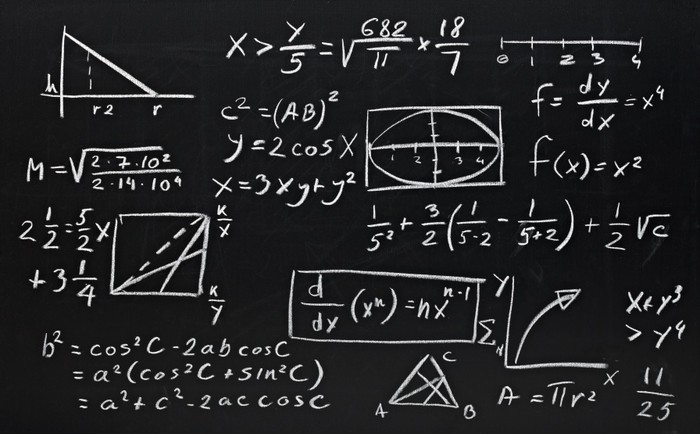 h
r2 r
x > y/5 = √(682/π) × 18/7
0 1 2 3 4
c² = (AB)²
y = 2 cos x
x = 3xy + y²
1 2 3 4
f = dy/dx = x⁴
f(x) = x²
M = √(2·7·10²/2·14·10⁴)
2 1/2 = 5/2 x
+ 3 1/4
K/X
K/Y
1/5² + 3/2 (1/5-2 - 1/5+2) + 1/2 √c
d/dx (xⁿ) = nxⁿ⁻¹
Y
X
b² = cos²C - 2ab cosC
= a² (cos²C + sin²C)
= a² + c² - 2ac cosC
A B C
A = πr²
> y⁴
11/25